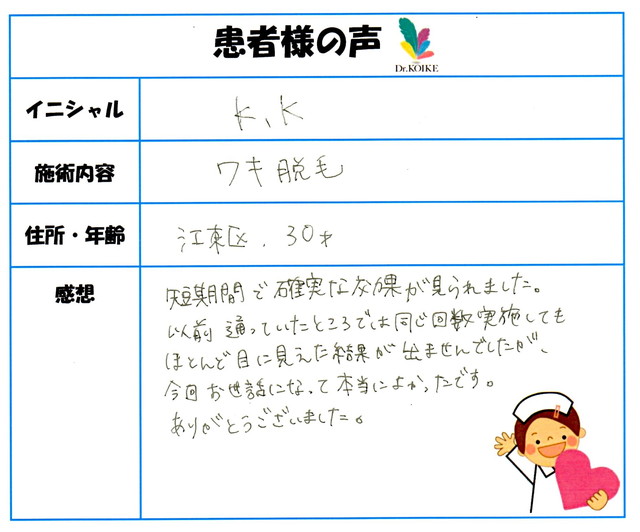 患者様の声
Dr.KOIKE
イニシャル
K、K
施術内容
ワキ脱毛
住所・年齢
江東区、30才
感想
短期間で確実な効果が見られました。
以前通っていたところでは同じ回数実施しても
ほとんど目に見えた結果が出ませんでしたが、
今回お世話になって本当によかったです。
ありがとうございました。